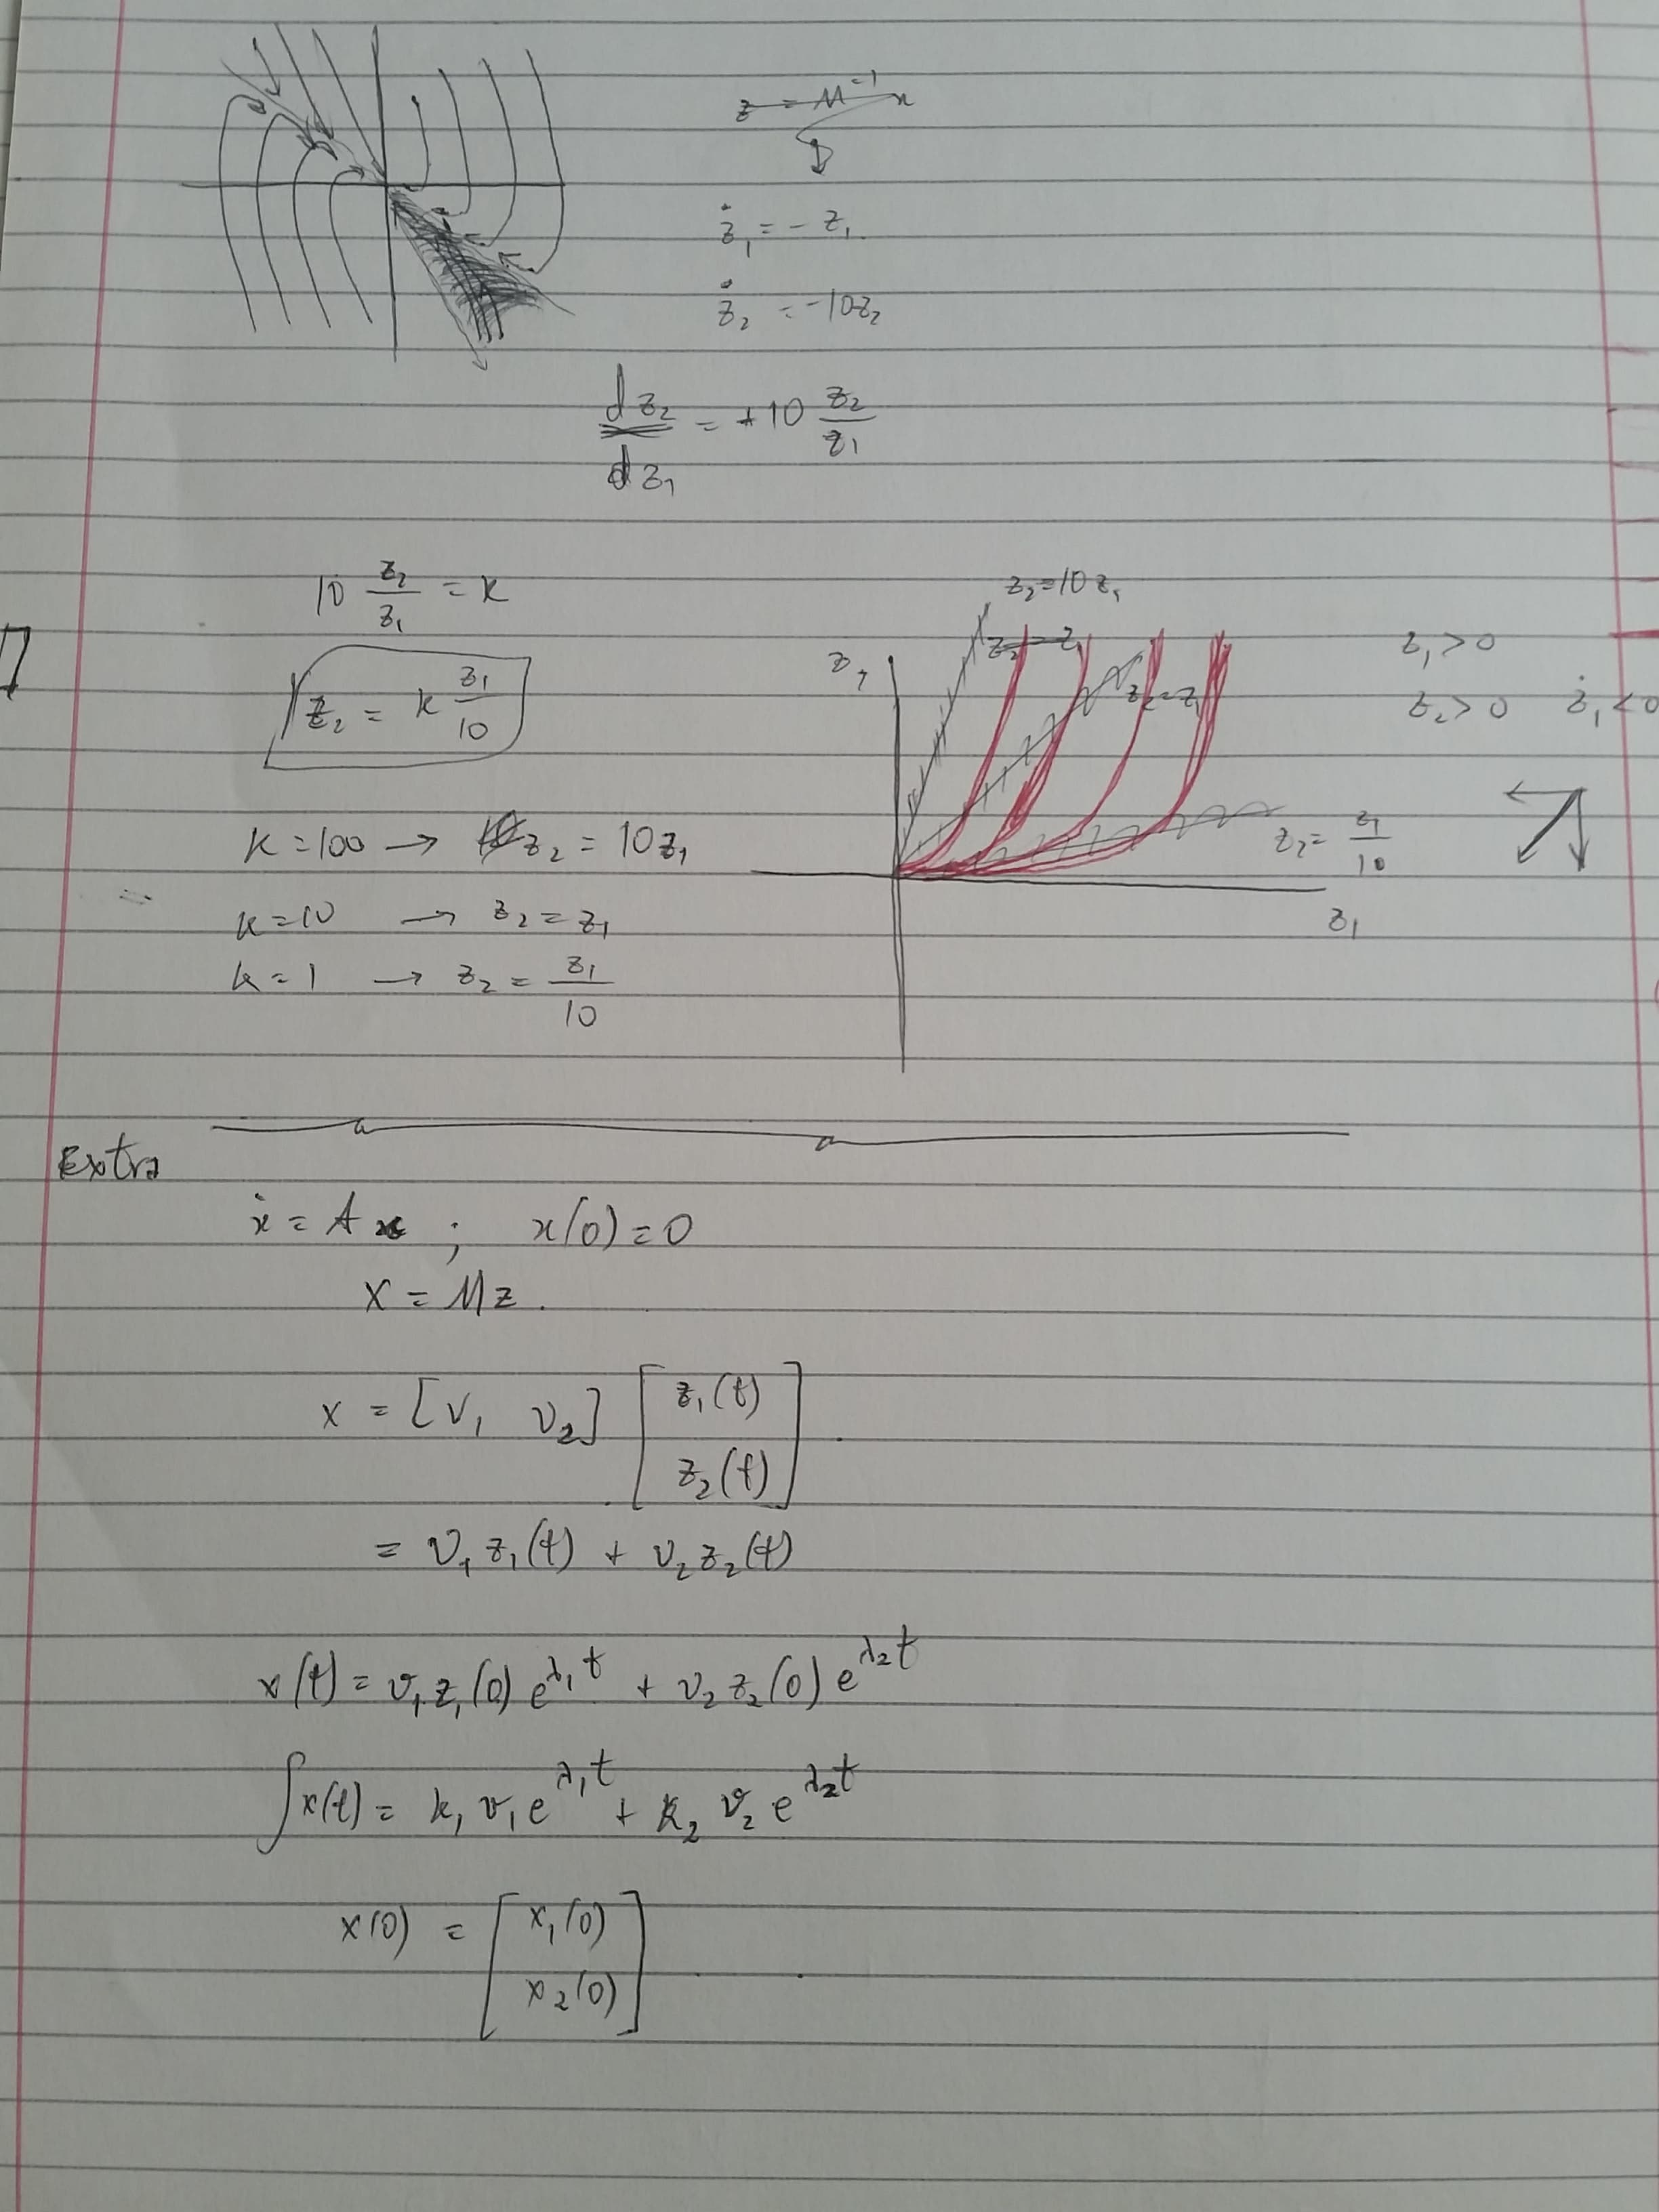 z = M⁻¹x
ż₁ = - z₁.
ż₂ = -10z₂
dz₂/dz₁ = +10 z₂/z₁
10 z₂/z₁ = k
z₂ = k z₁/10
k = 100 → z₂ = 10z₁
k = 10 → z₂ = z₁
k = 1 → z₂ = z₁/10
z₂ = 10z₁
z₂ = z₁
z₂
z₂ = z₁
z₂ = z₁/10
z₁
z₁ > 0
z₂ > 0 ż₁ < 0
Extra
ẋ = Ax ; x(0) = 0
x = Mz.
x = [v₁ v₂] [z₁(t) z₂(t)].
= v₁z₁(t) + v₂z₂(t)
x(t) = v₁z₁(0)e^λ₁t + v₂z₂(0)e^λ₂t
∫x(t) = k₁v₁e^λ₁t + k₂v₂e^λ₂t
x(0) = [x₁(0) x₂(0)]